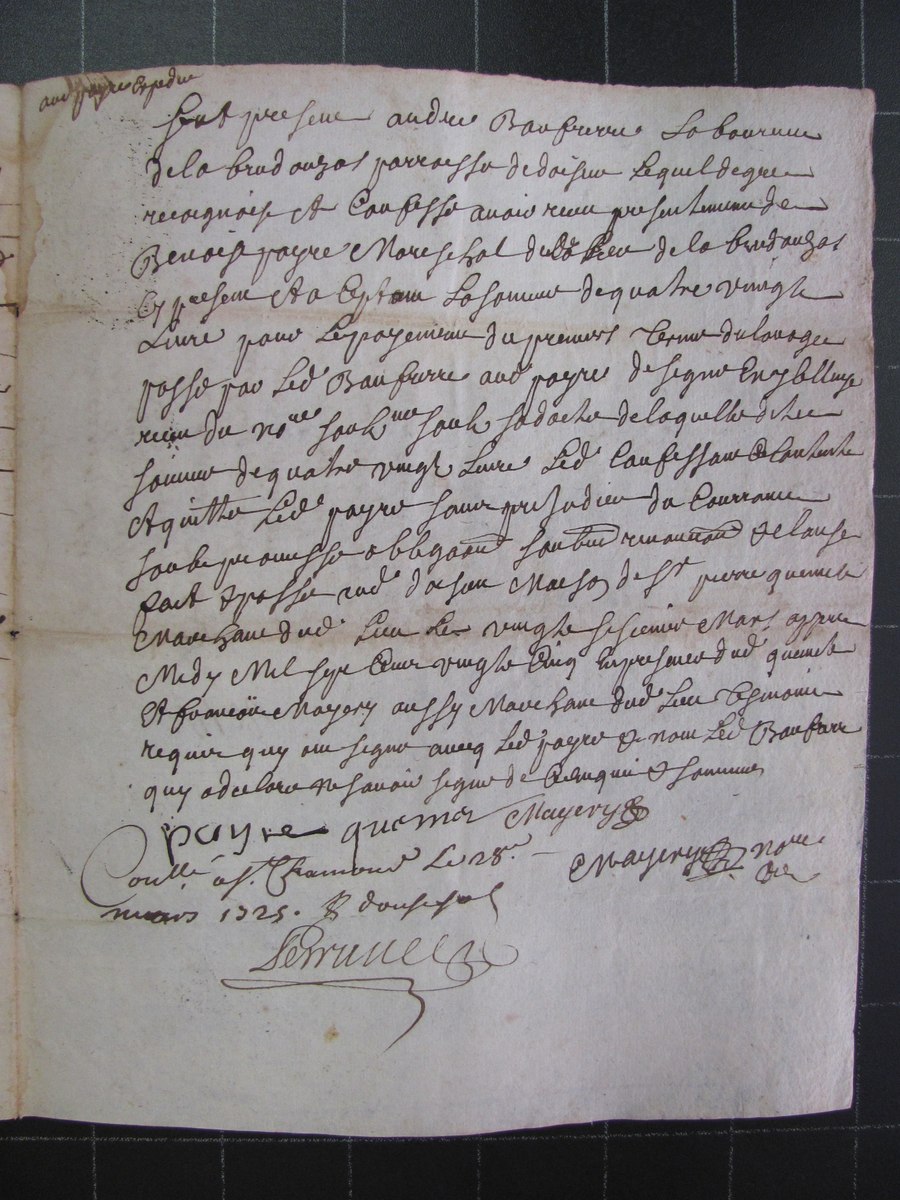 aud payre expedie
fut present andre Banfierre Laboureur
de la brudonzas parroesse de doisieu Lequel de gre
recognois et Confesse avoir receu presentement de
Benoist payre Mareschal dud Lieu de la brudonzas
Cy present et aceptant La somme de quatre vingt
Livre pour Le payement du premiers terme du louage
passe par Led. Banfierre aud payre de segne
receu du no.re soub.ne soub sa datte de laquelle ditte
somme de quatre vingt Livre Led. Confessant Contente
et quitte Led. payre sans prejudice du Courrant
soub promesse obligaon soubmon renonaon et clause
fait et passe aud. doisieu Maison de S.r pierre quemet
Marchant dud. Lieu Le vingt sesieme Mars appres
Midy Mil sept Cent vingt Cinq En presence dud. quemet
et françois Mayery aussy Marchant dud. Lieu tesmoins
requis quy ont segne avecq Led. payre et non Led. Banfierre
quy a declare ne savoir segne de Ce enquis et somme
payre quemet Mayery
Mayery no.re
Con.lle a S.t Chamond Le 28.e
mars 1725. R douse sol
Perrunel